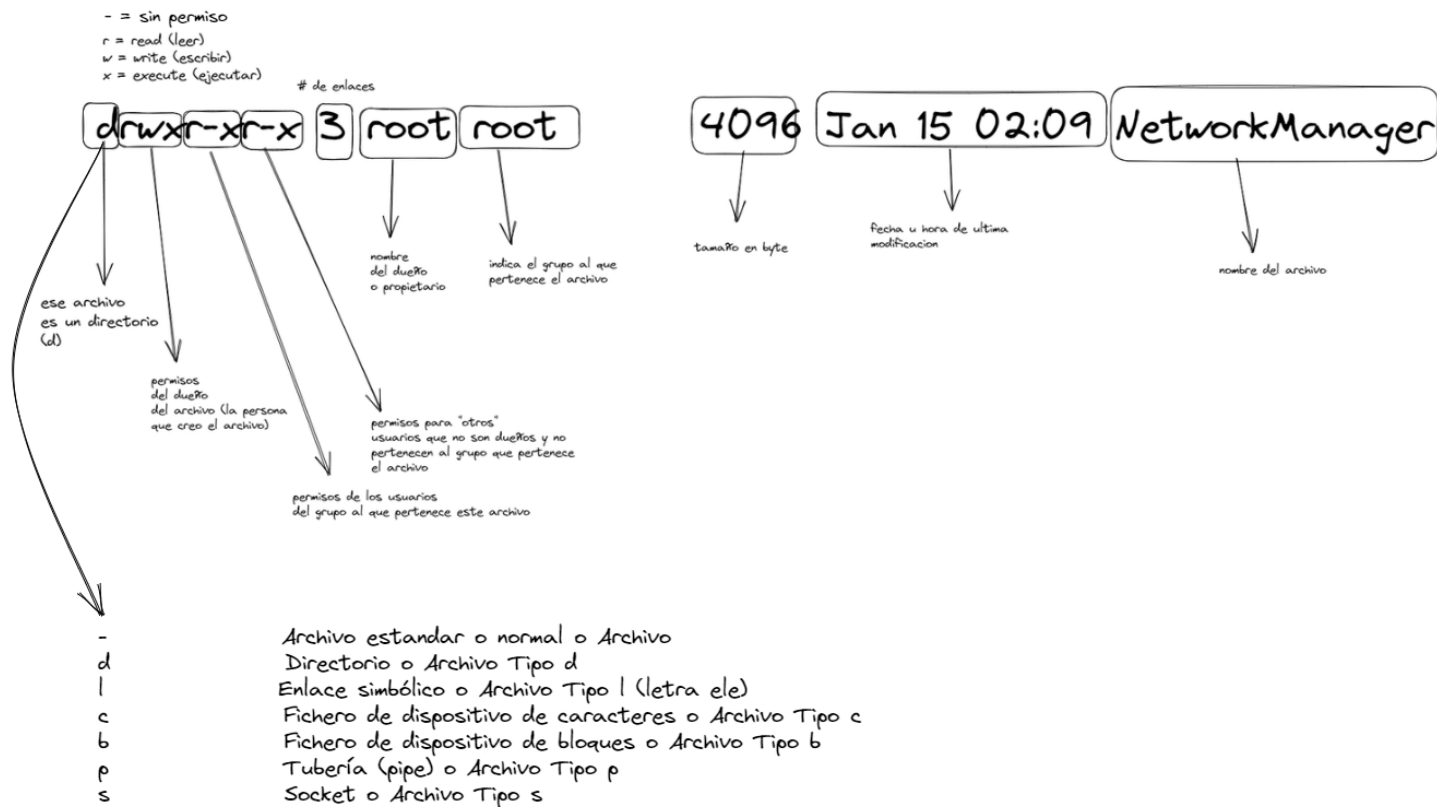 - = sin permiso
r = read (leer)
w = write (escribir)
x = execute (ejecutar)
# de enlaces
drwxr-xr-x 3 root root 4096 Jan 15 02:09 NetworkManager
ese archivo
es un directorio
(d)
permisos
del dueño
del archivo (la persona
que creo el archivo)
permisos de los usuarios
del grupo al que pertenece este archivo
permisos para "otros"
usuarios que no son dueños y no
pertenecen al grupo que pertenece
el archivo
nombre
del dueño
o propietario
indica el grupo al que
pertenece el archivo
tamaño en byte
fecha u hora de ultima
modificacion
nombre del archivo
- Archivo estandar o normal o Archivo
d Directorio o Archivo Tipo d
l Enlace simbólico o Archivo Tipo l (letra ele)
c Fichero de dispositivo de caracteres o Archivo Tipo c
b Fichero de dispositivo de bloques o Archivo Tipo b
p Tubería (pipe) o Archivo Tipo p
s Socket o Archivo Tipo s